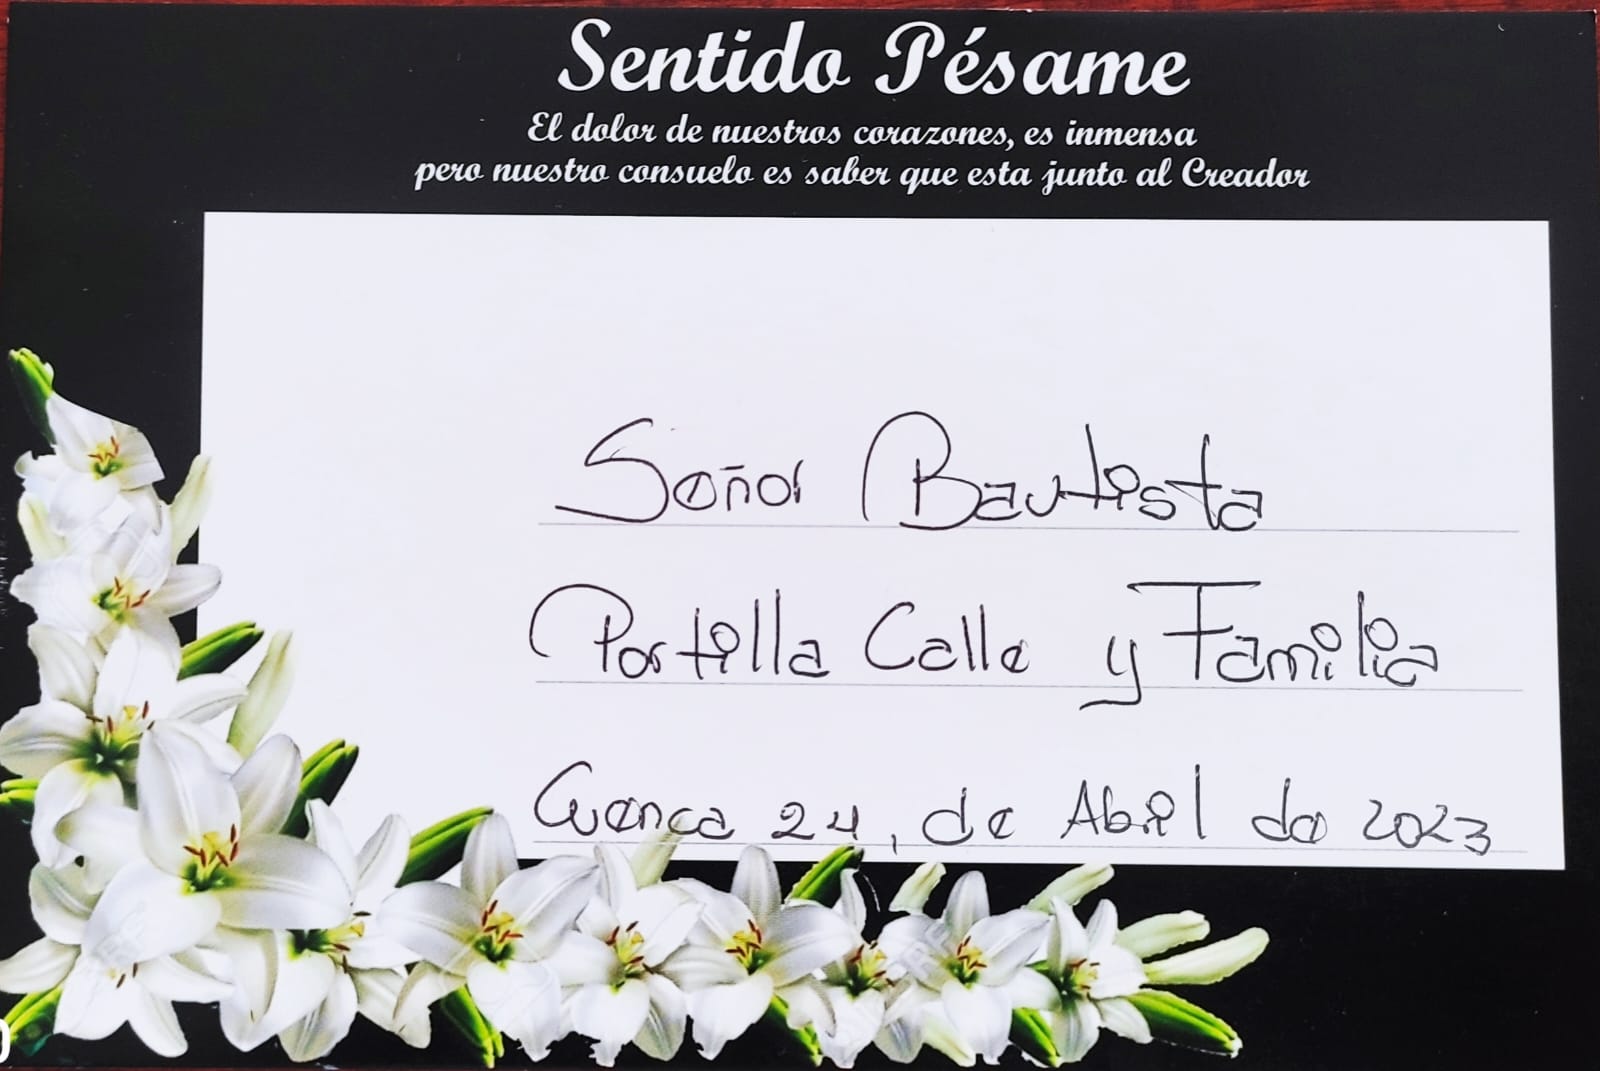 Sentido Pésame
El dolor de nuestros corazones, es inmensa
pero nuestro consuelo es saber que esta junto al Creador
Señor Bautista
Portilla Calle y Familia
Cuenca 24, de Abril de 2023